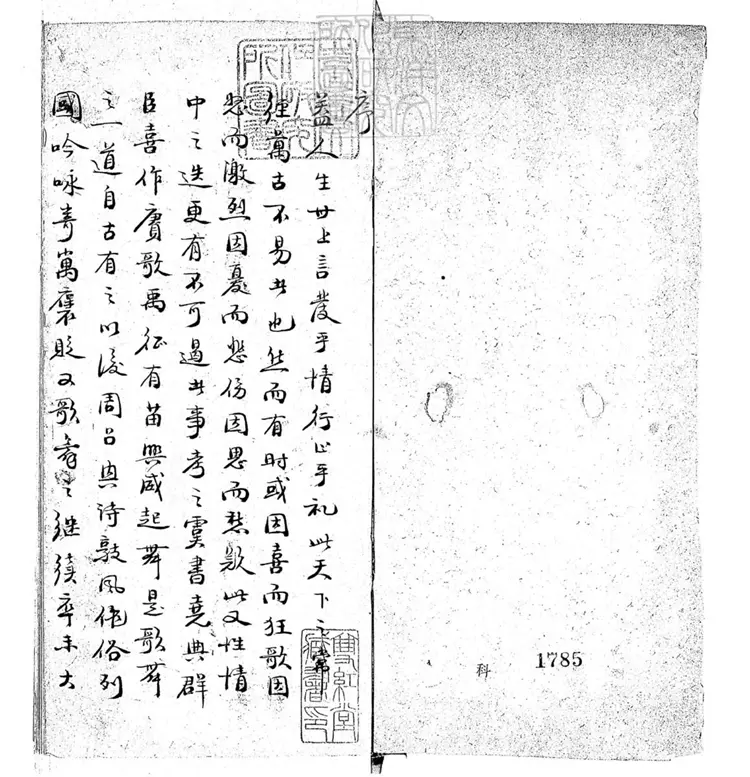 序
蓋人生世上言發乎情行止乎礼此天下之常
經萬古不易者也然而有时或因喜而狂歌因
怒而激烈因憂而悲傷因思而愁歎此又性情
中之迭更有不可遏者事考之虞書堯典群
臣喜作賡歌禹征有苗興感起舞是歌舞
之一道自古有之以後周召典诗敦风俗列
國吟咏寄寓褒貶又歌舞之继续卒未大
雙紅堂
藏書印
科
1785